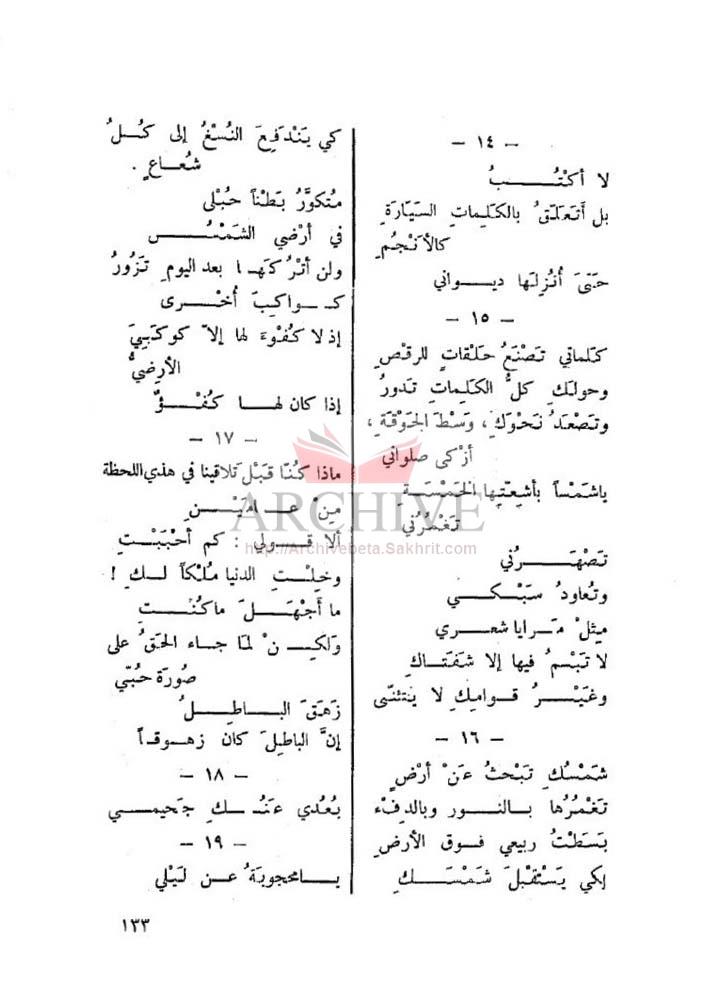 - ١٤ -
لا أكْتُــــبُ
بل أتَعَلَّقُ بالكَلِماتِ السَيّارَةِ
كالأنْجُمِ
حَتىَّ أُنْزِلَها ديـواني
- ١٥ -
كَلماتي تَصْنَعُ حَلْقاتٍ للرقْصِ
وحولَكِ كلُّ الكَلِماتِ تَدورُ
وتَصْعَدُ نَحْوَكِ ، وَسْطَ الجَوْقَةِ ،
أزْكى صلواتي
ياشَمْساً بأشِعّتِها الخَمْسَــةِ
تَغْمُرُني
تَصْهَــرُني
وتُعاودُ سَبْــكي
مِثلْ مَرايا شعري
لا تَبْسمُ فيها إلا شَفَتاكِ
وغَيْــرُ قوامِكِ لا يَتَثنّى
- ١٦ -
شَمْسُكِ تَبْحثُ عَنْ أرْضٍ
تَغْمُرُها بــالنــور وبالدِفْء
بَسَطْتُ ربيعي فـوق الأرضِ
لكي يَسْتَقْبلَ شَمْسَــكِ
كي يَنْدفِعَ النُسْغُ إلى كُــلُ
شُعــاعٍ .
مُتكوّرُ بَطْناً حُبْلى
في أرْضي الشَمْــسُ
ولن أتْرُكَهــا بعد اليومِ تَزُورُ
كــواكِبَ أُخْــرى
إذ لا كُفْوءَ لها إلاّ كوكَبيَ
الأرضِيُّ
إذا كان لهــا كُفْــؤٌ
- ١٧ -
ماذا كُنّا قَبْلَ تلاقينا في هذي اللحظة
مِنْ عــامَيْــنِ
ألا قــولي : كم أحْبَبْــتِ
وخِلْــتِ الدنيا مُلْكاً لــكِ !
ما أجْهَــلَ ما كُنْــتِ
وَلكِــنْ لمّا جــاء الحَقُ على
صُورَة حُبّي
زَهَقَ البــاطِــلُ
إنَّ الباطِلَ كان زهــوقــاً
- ١٨ -
بُعْدي عَنْــكِ جَحيمــي
- ١٩ -
يــا محجوبَةُ عــن لَيْلي
١٣٣
ARCHIVE
http://Archivebeta.Sakhrit.com